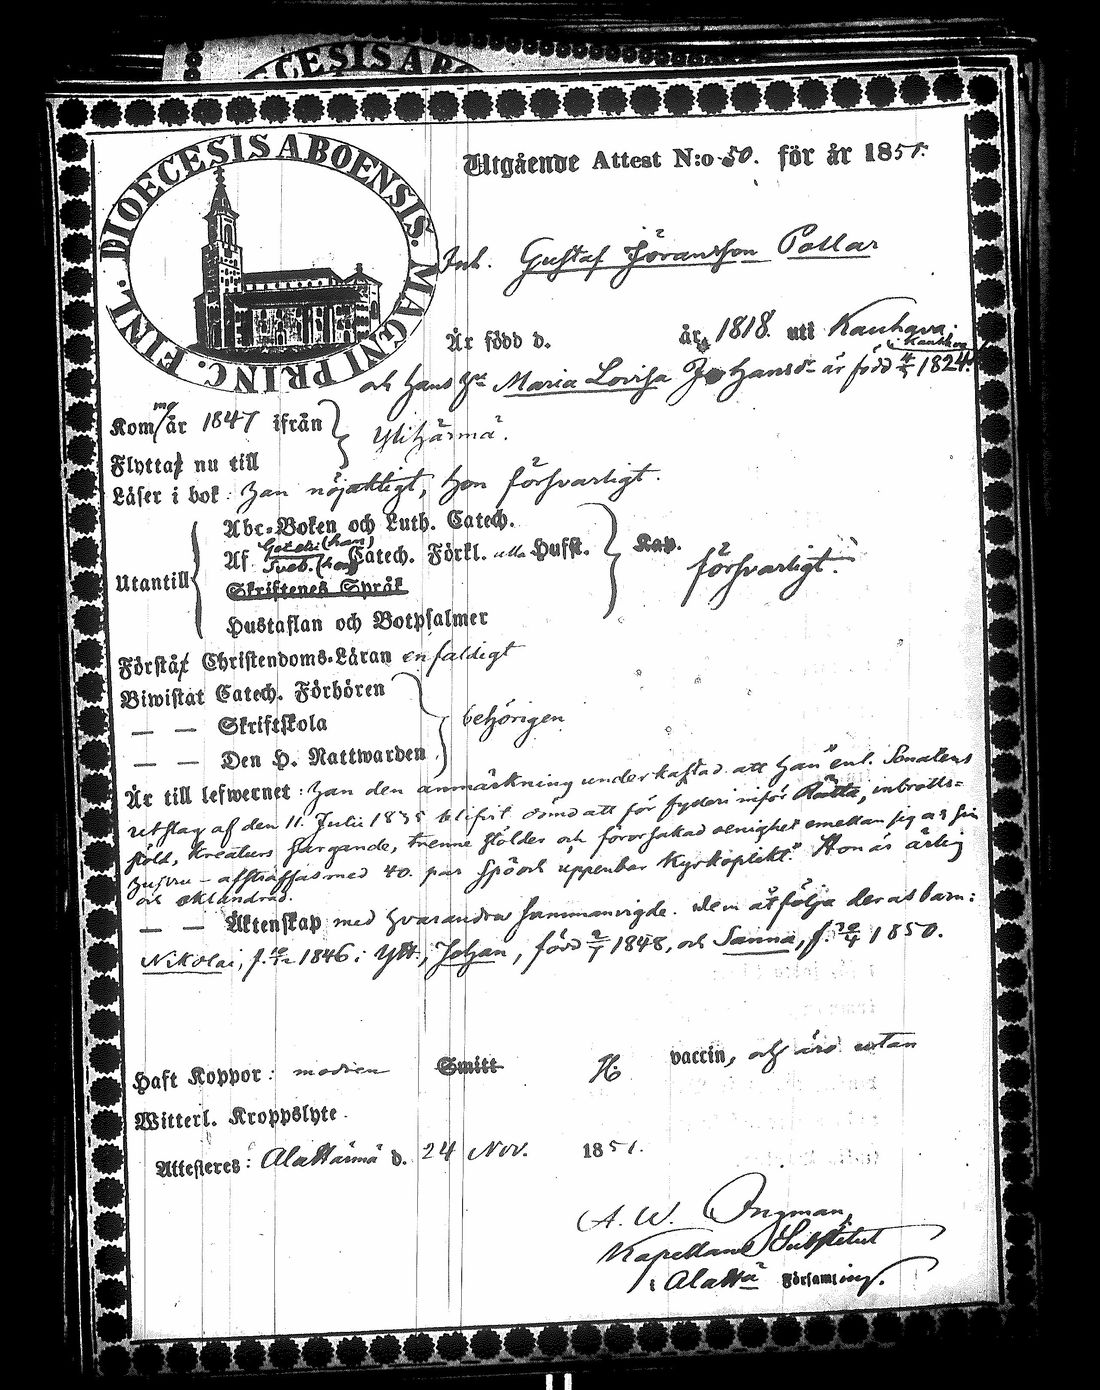 DIOECESIS ABO
DIOECESIS ABOENSIS. MAGNI PRINC. FINL.
Utgående Attest N:o 50. för år 1851.
Inh. Gustaf Jöransson Pollar
Är född d. år 1818. uti Kauhava;
och hans h:u Maria Lovisa Johansd:r är född 4/5 1824. i Kauhava
Kom/mo år 1847 ifrån
Ylihärmä.
Flytta nu till
Läser i bok: han nöjaktigt, hon försvarligt.
Abc-Boken och Luth. Catech.
Utantill Af Gezelii (han) Sveb. (hon) Catech. Förkl. utto Hufst. Kap. försvarligt.
Skriftenes Språk
Hustaflan och Botpsalmer
Förstå Christendoms-Läran enfaldigt
Biwistat Catech. Förhören
— — Skriftskola behörigen
— — Den H. Nattwarden
Är till lefwernet: han den anmärkning underkastad att han "enl. Senatens
utslag af den 11. Julii 1835 blifvit dömd att för fylleri inför Rätta, inbrotts-
stöld, kreaturs färgande, trenne stölder och förorsakad oenighet emellan sig och sin
hustru - afstraffas med 40. par spö och uppenbar kyrkoplikt." Hon är ärlig
och oklandrad.
— — Äktenskap med hvarandra sammanvigde. Dem åtfölja deras barn:
Nikolai, f. 1846 i Ylih., Johan, född 1848, och Sanna, f. 29/4 1850.
Haft Koppor: modren Smitt H: vaccin, och äro utan
Witterl. Kroppslyte.
Attesteres: Alahärmä d. 24 Nov. 1851.
A. W. Ingman,
Kapellans Substitut
i Alahä Församling.